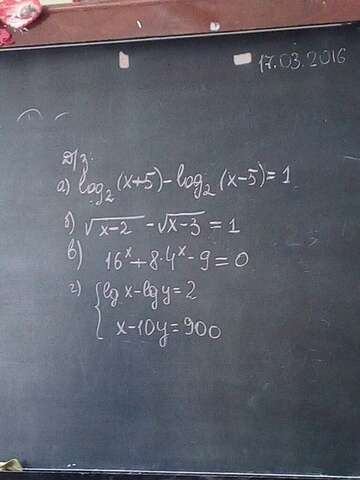 17.03.2016
Д/з:
а) log₂(x+5)-log₂(x-5)=1
б) √x-2 - √x-3 = 1
в) 16ˣ+8·4ˣ-9=0
г) { lg x-lg y=2
x-10y=900